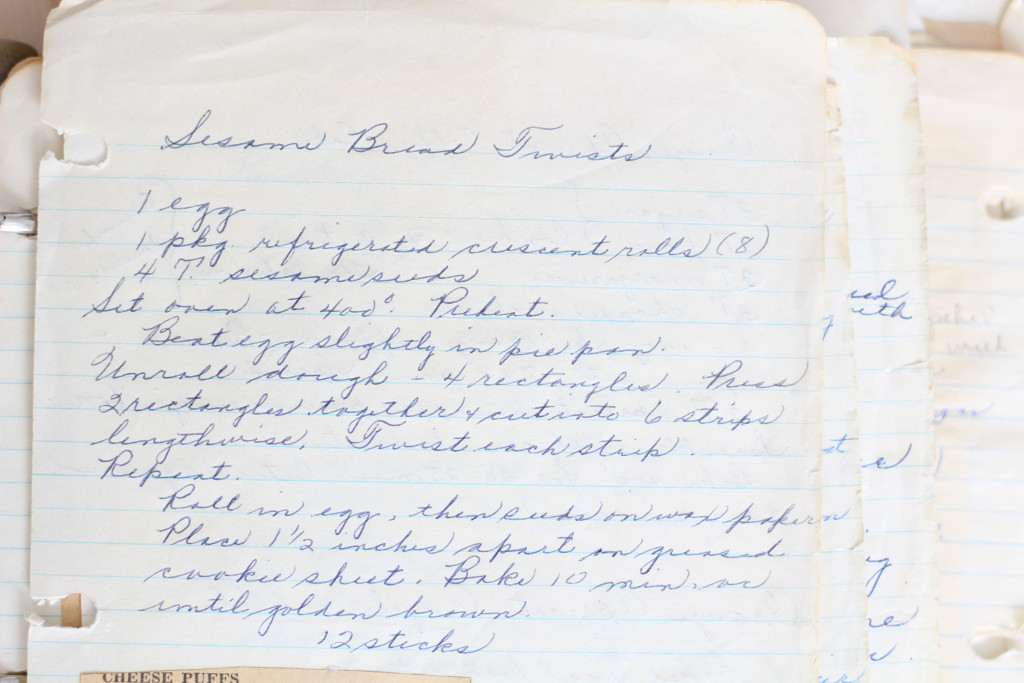 Sesame Bread Twists
1 egg
1 pkg. refrigerated crescent rolls (8)
4 T. sesame seeds
Set oven at 400°. Preheat.
Beat egg slightly in pie pan.
Unroll dough - 4 rectangles. Press
2 rectangles together & cut into 6 strips
lengthwise. Twist each strip.
Repeat.
Roll in egg, then seeds on wax paper.
Place 1 1/2 inches apart on greased
cookie sheet. Bake 10 min. or
until golden brown.
12 sticks
CHEESE PUFFS